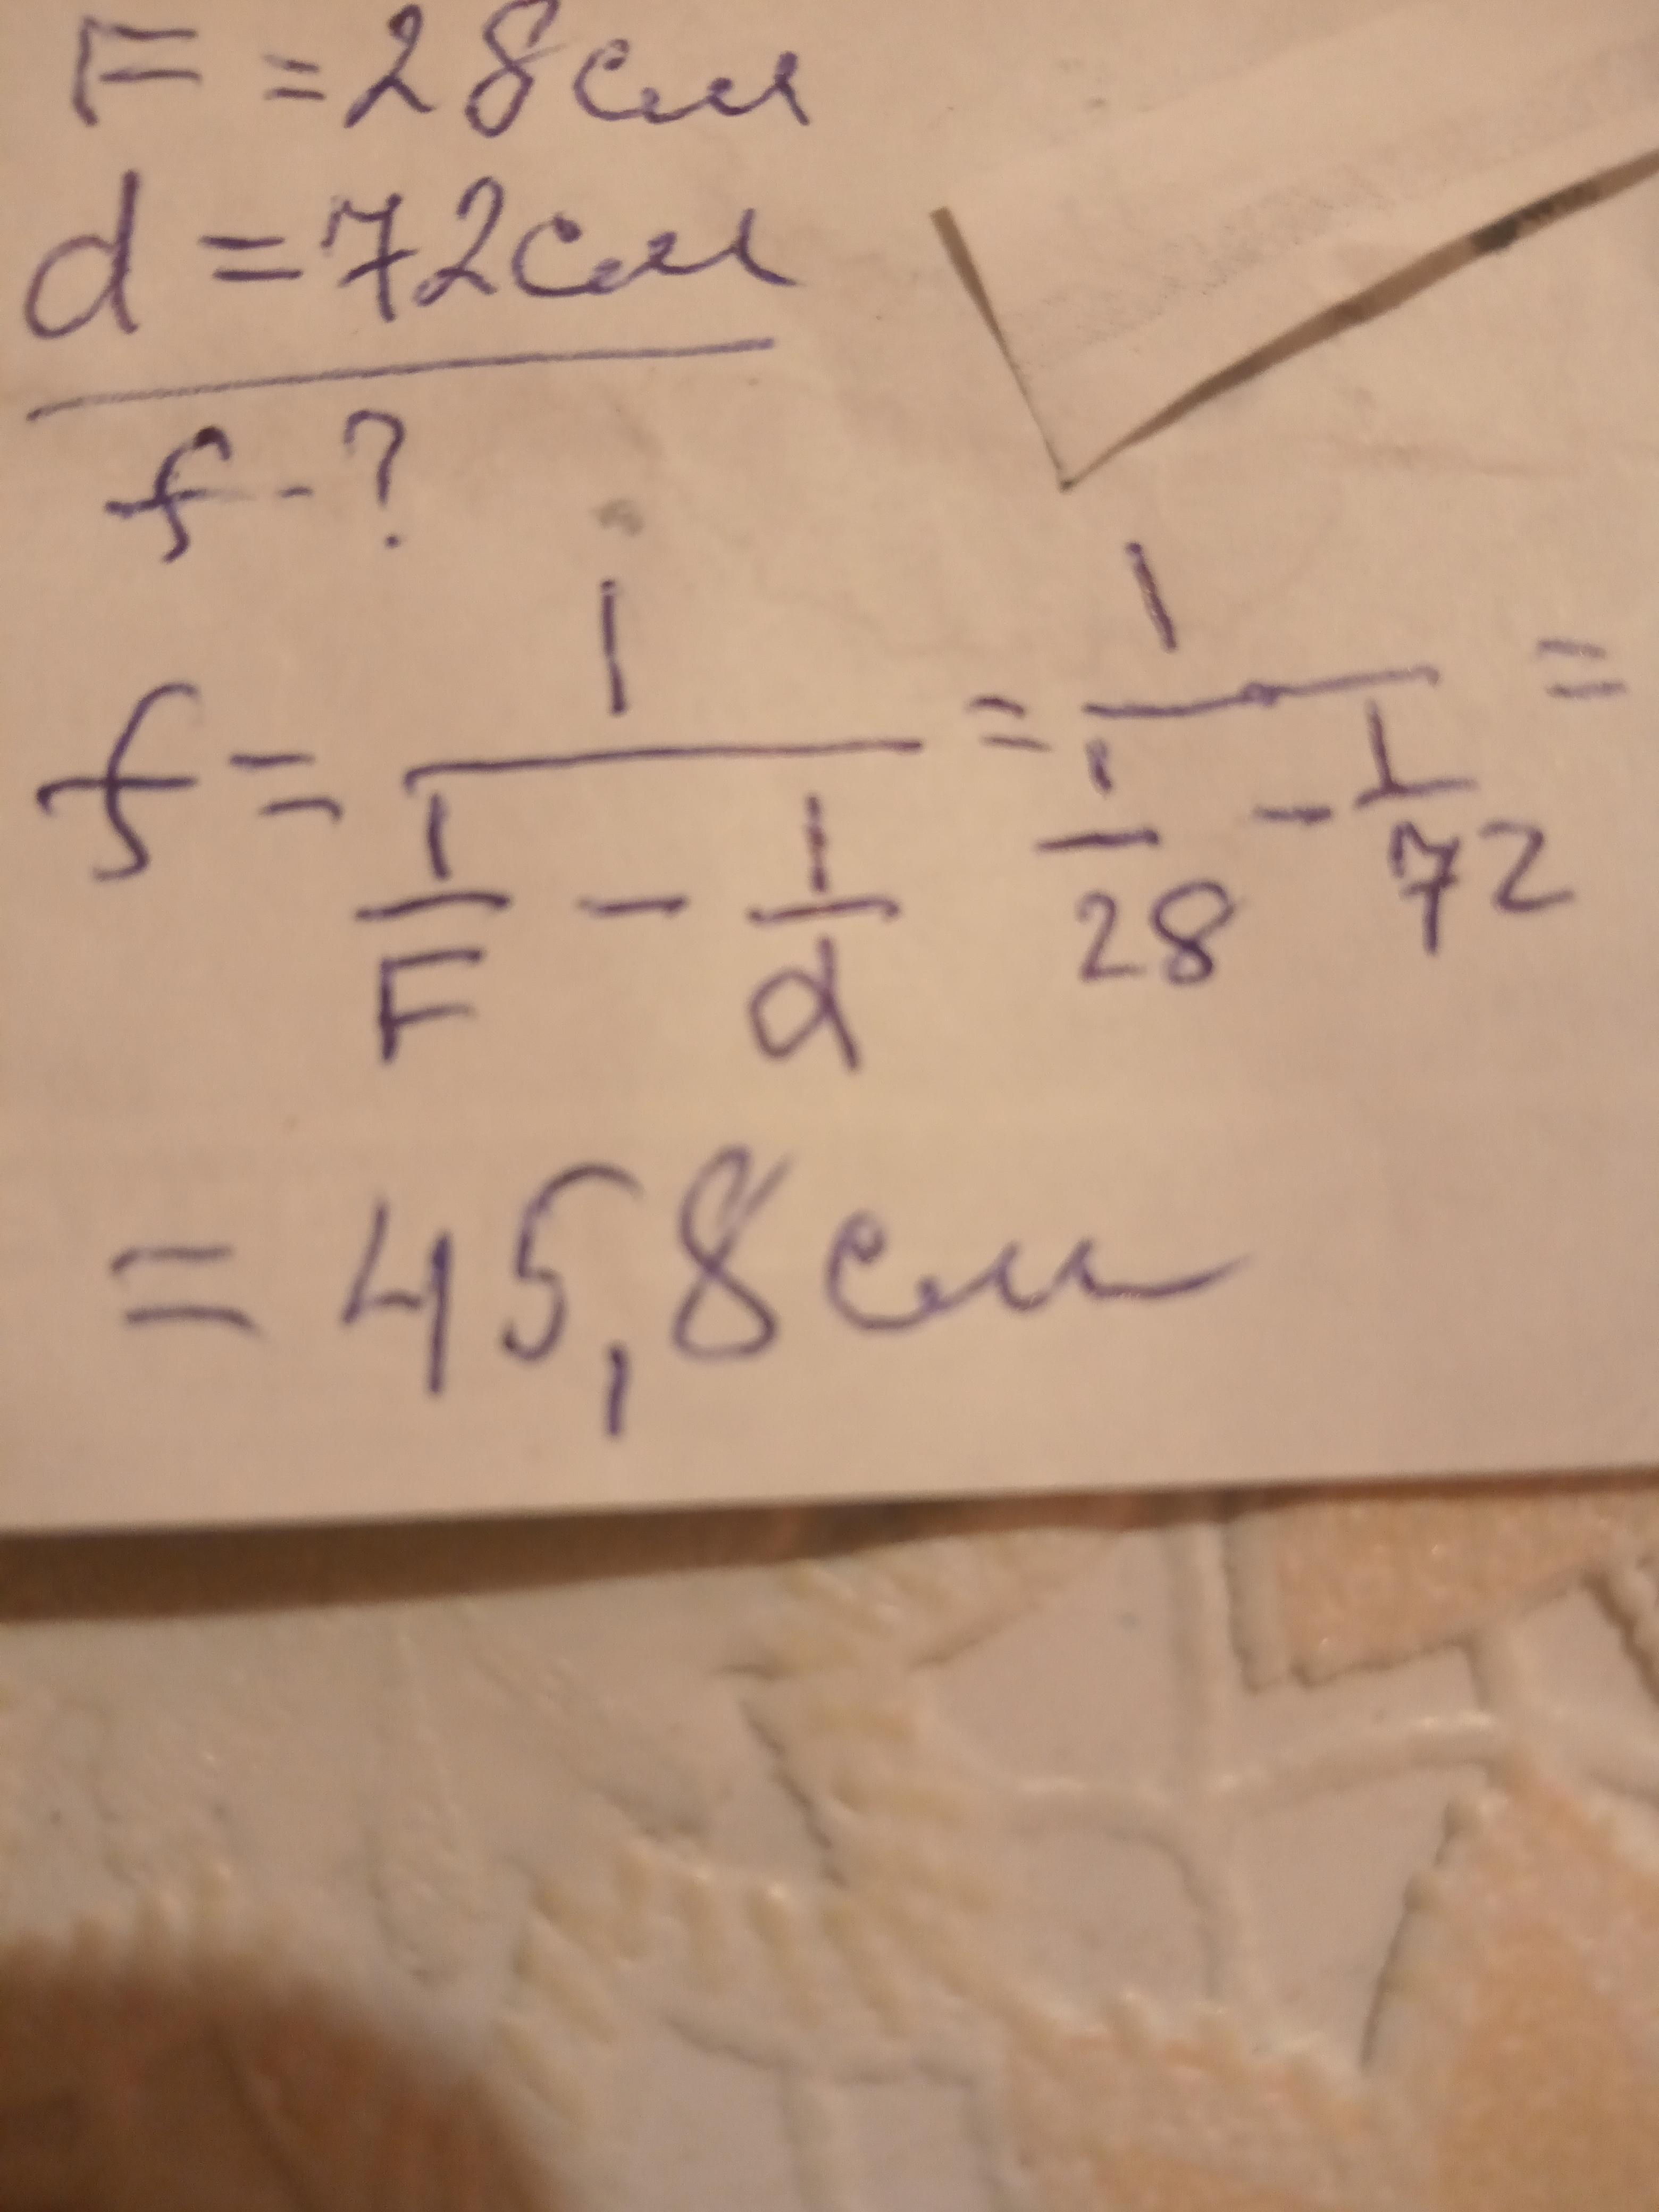 F = 28 см
d = 72 см
f - ?
f = 1 / (1/F - 1/d) = 1 / (1/28 - 1/72) =
= 45,8 см